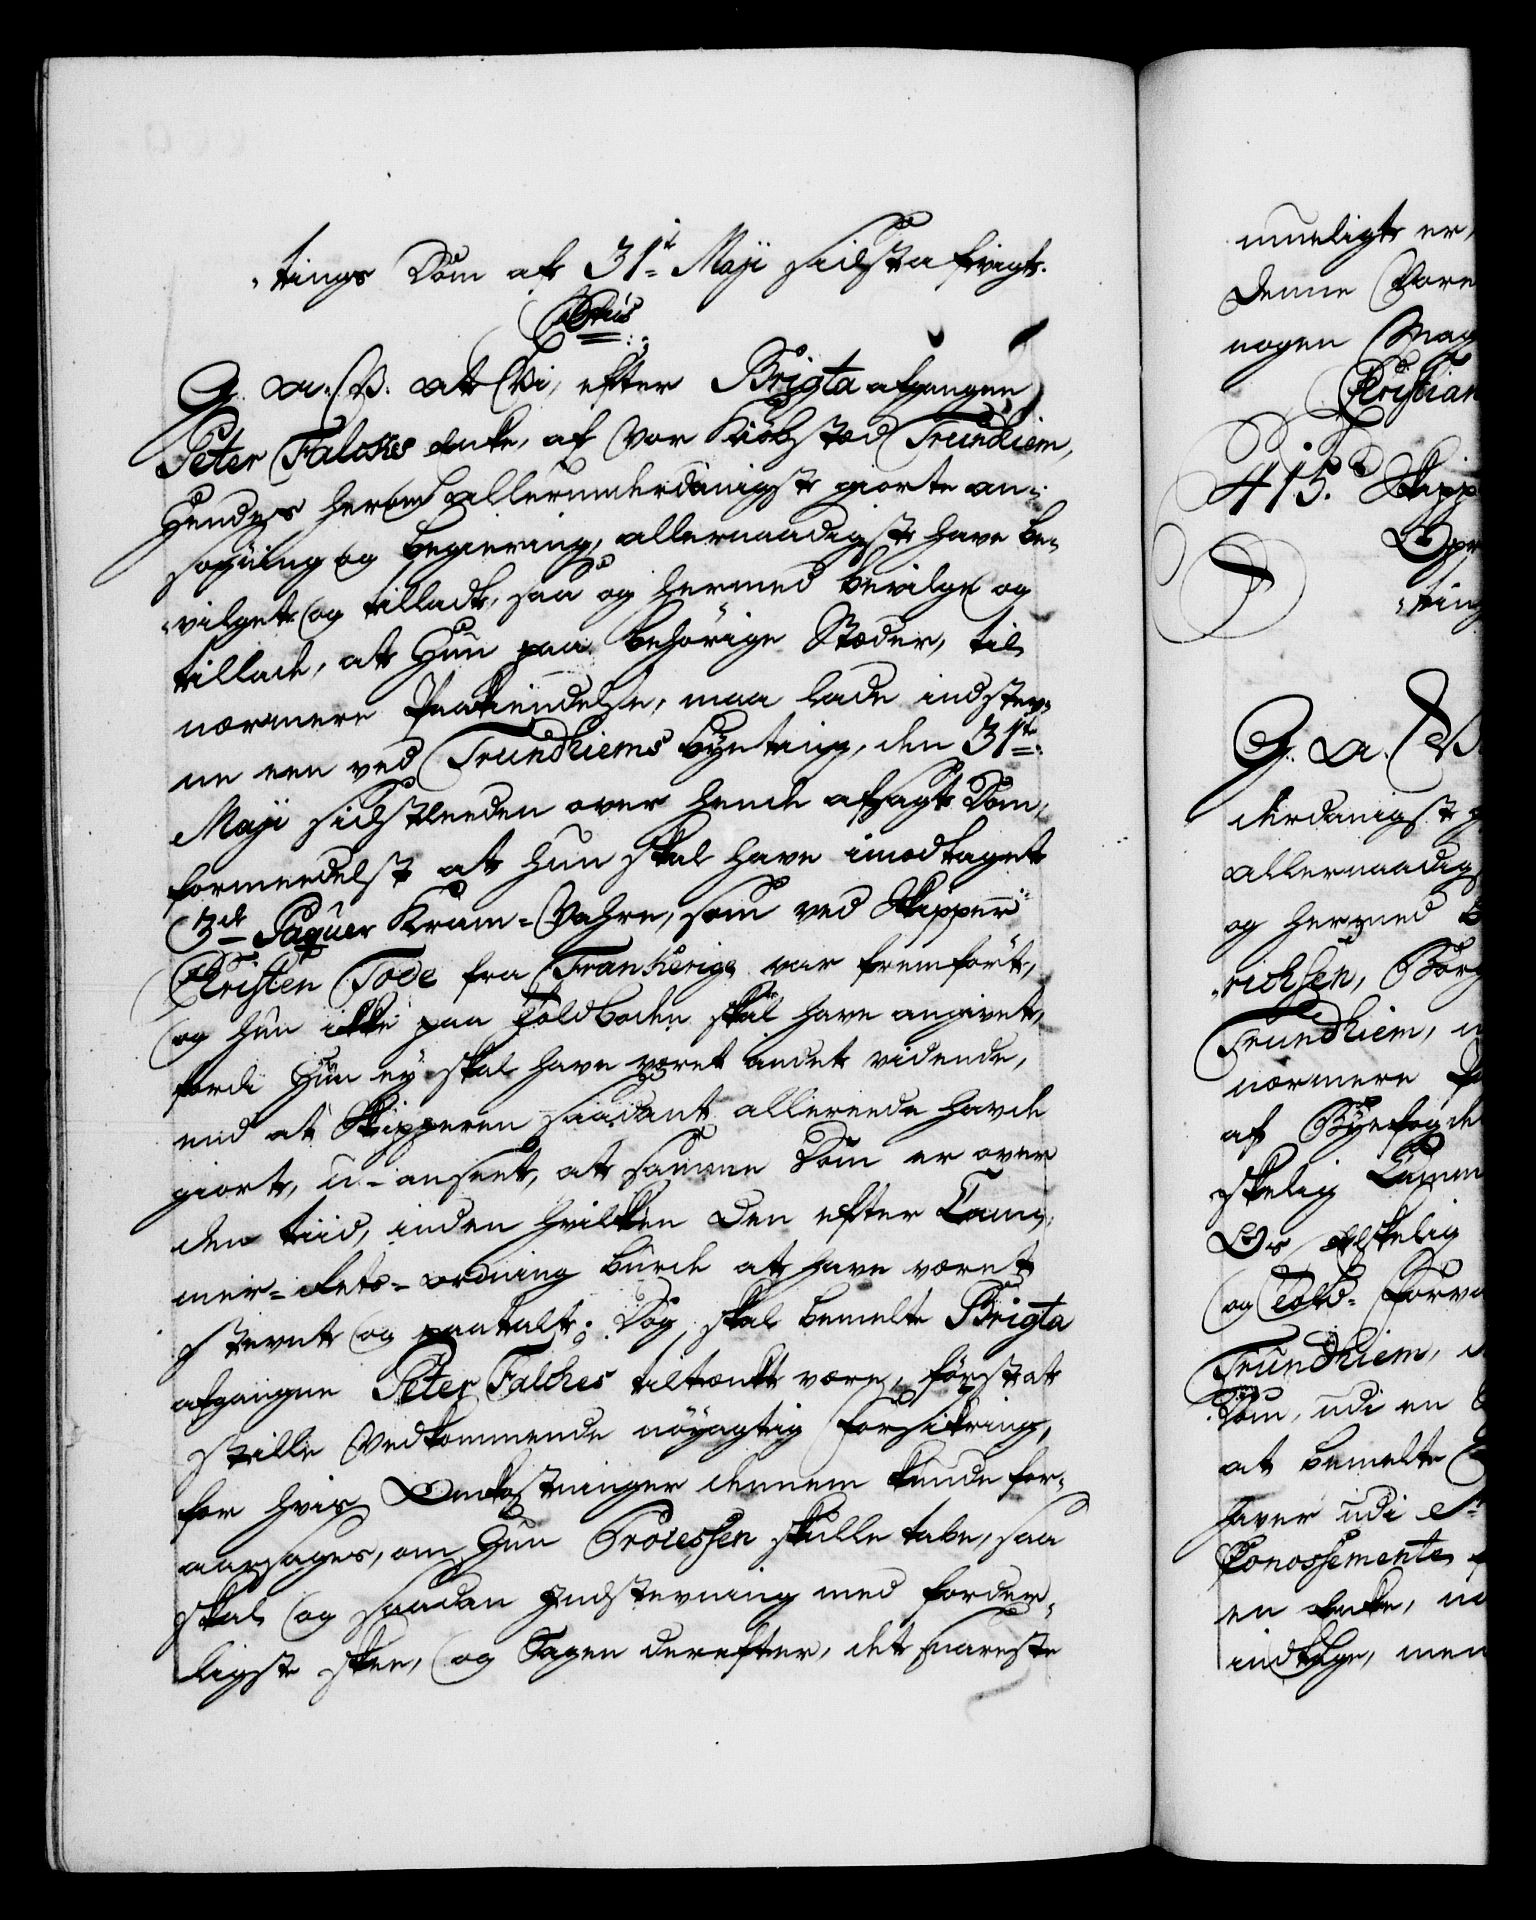 -tings Dom af 31te Maji sidst afvigt.
Gratis
G. a. V. at Vi, efter Brigta afgangen
Peter Falches Enke, af Vor Kiöbstæd Trundhiem,
Hendes herom allerunderdanigst giorte an-
søgning og begiering, allernaadigst have be-
-vilget og tilladt, saa og hermed bevilge og
tillade, at Hun paa behörige Stæder, til
nærmere Paakiendelse, maa lade indstev-
ne een ved Trundhiems byeting, den 31te
Maji sidstleeden over hende afsagt Dom,
formeedelst at hun skal have imodtaget
3de Paquer Kram-Vahre, som ved Skipper
Christen Tode fra Frankerige var fremfört,
og hun ikke paa Toldboden skal have angivet,
fordi Hun ey skal have været andet vidende,
end at Skipperen saadant allereede havde
giort, u-anseet, at samme Dom er over
den tiid, inden hvilken den efter Cam-
mer-Rets-ordning burde at have været
stevnt og paatalt; Dog skal bemelte Brigta
afgangne Peter Falches tiltænkt være, først at
stille Vedkommende nöyagtig Forsikring,
for hvis Omkostninger dennem kunde for-
aarsages, om Hun Processen skulle tabe, saa
skal og saadan Indstevning med forder-
ligste skee, og Sagen derefter, det snareste
mueligt er,
Denne Vore
nogen
Christian
415. Skipp
Opr
-ting
G. a. V
derdanigst g
allernaadigs
og hermed b
-richsen, Borg
Trundhiem,
nærmere
af Byefogde
skelig Camm
Os Elskelig
og Told-Forva
Trundhiem,
Dom, udi en
at bemelte
haver udi
Conossemente
en Enke,
indtage, men